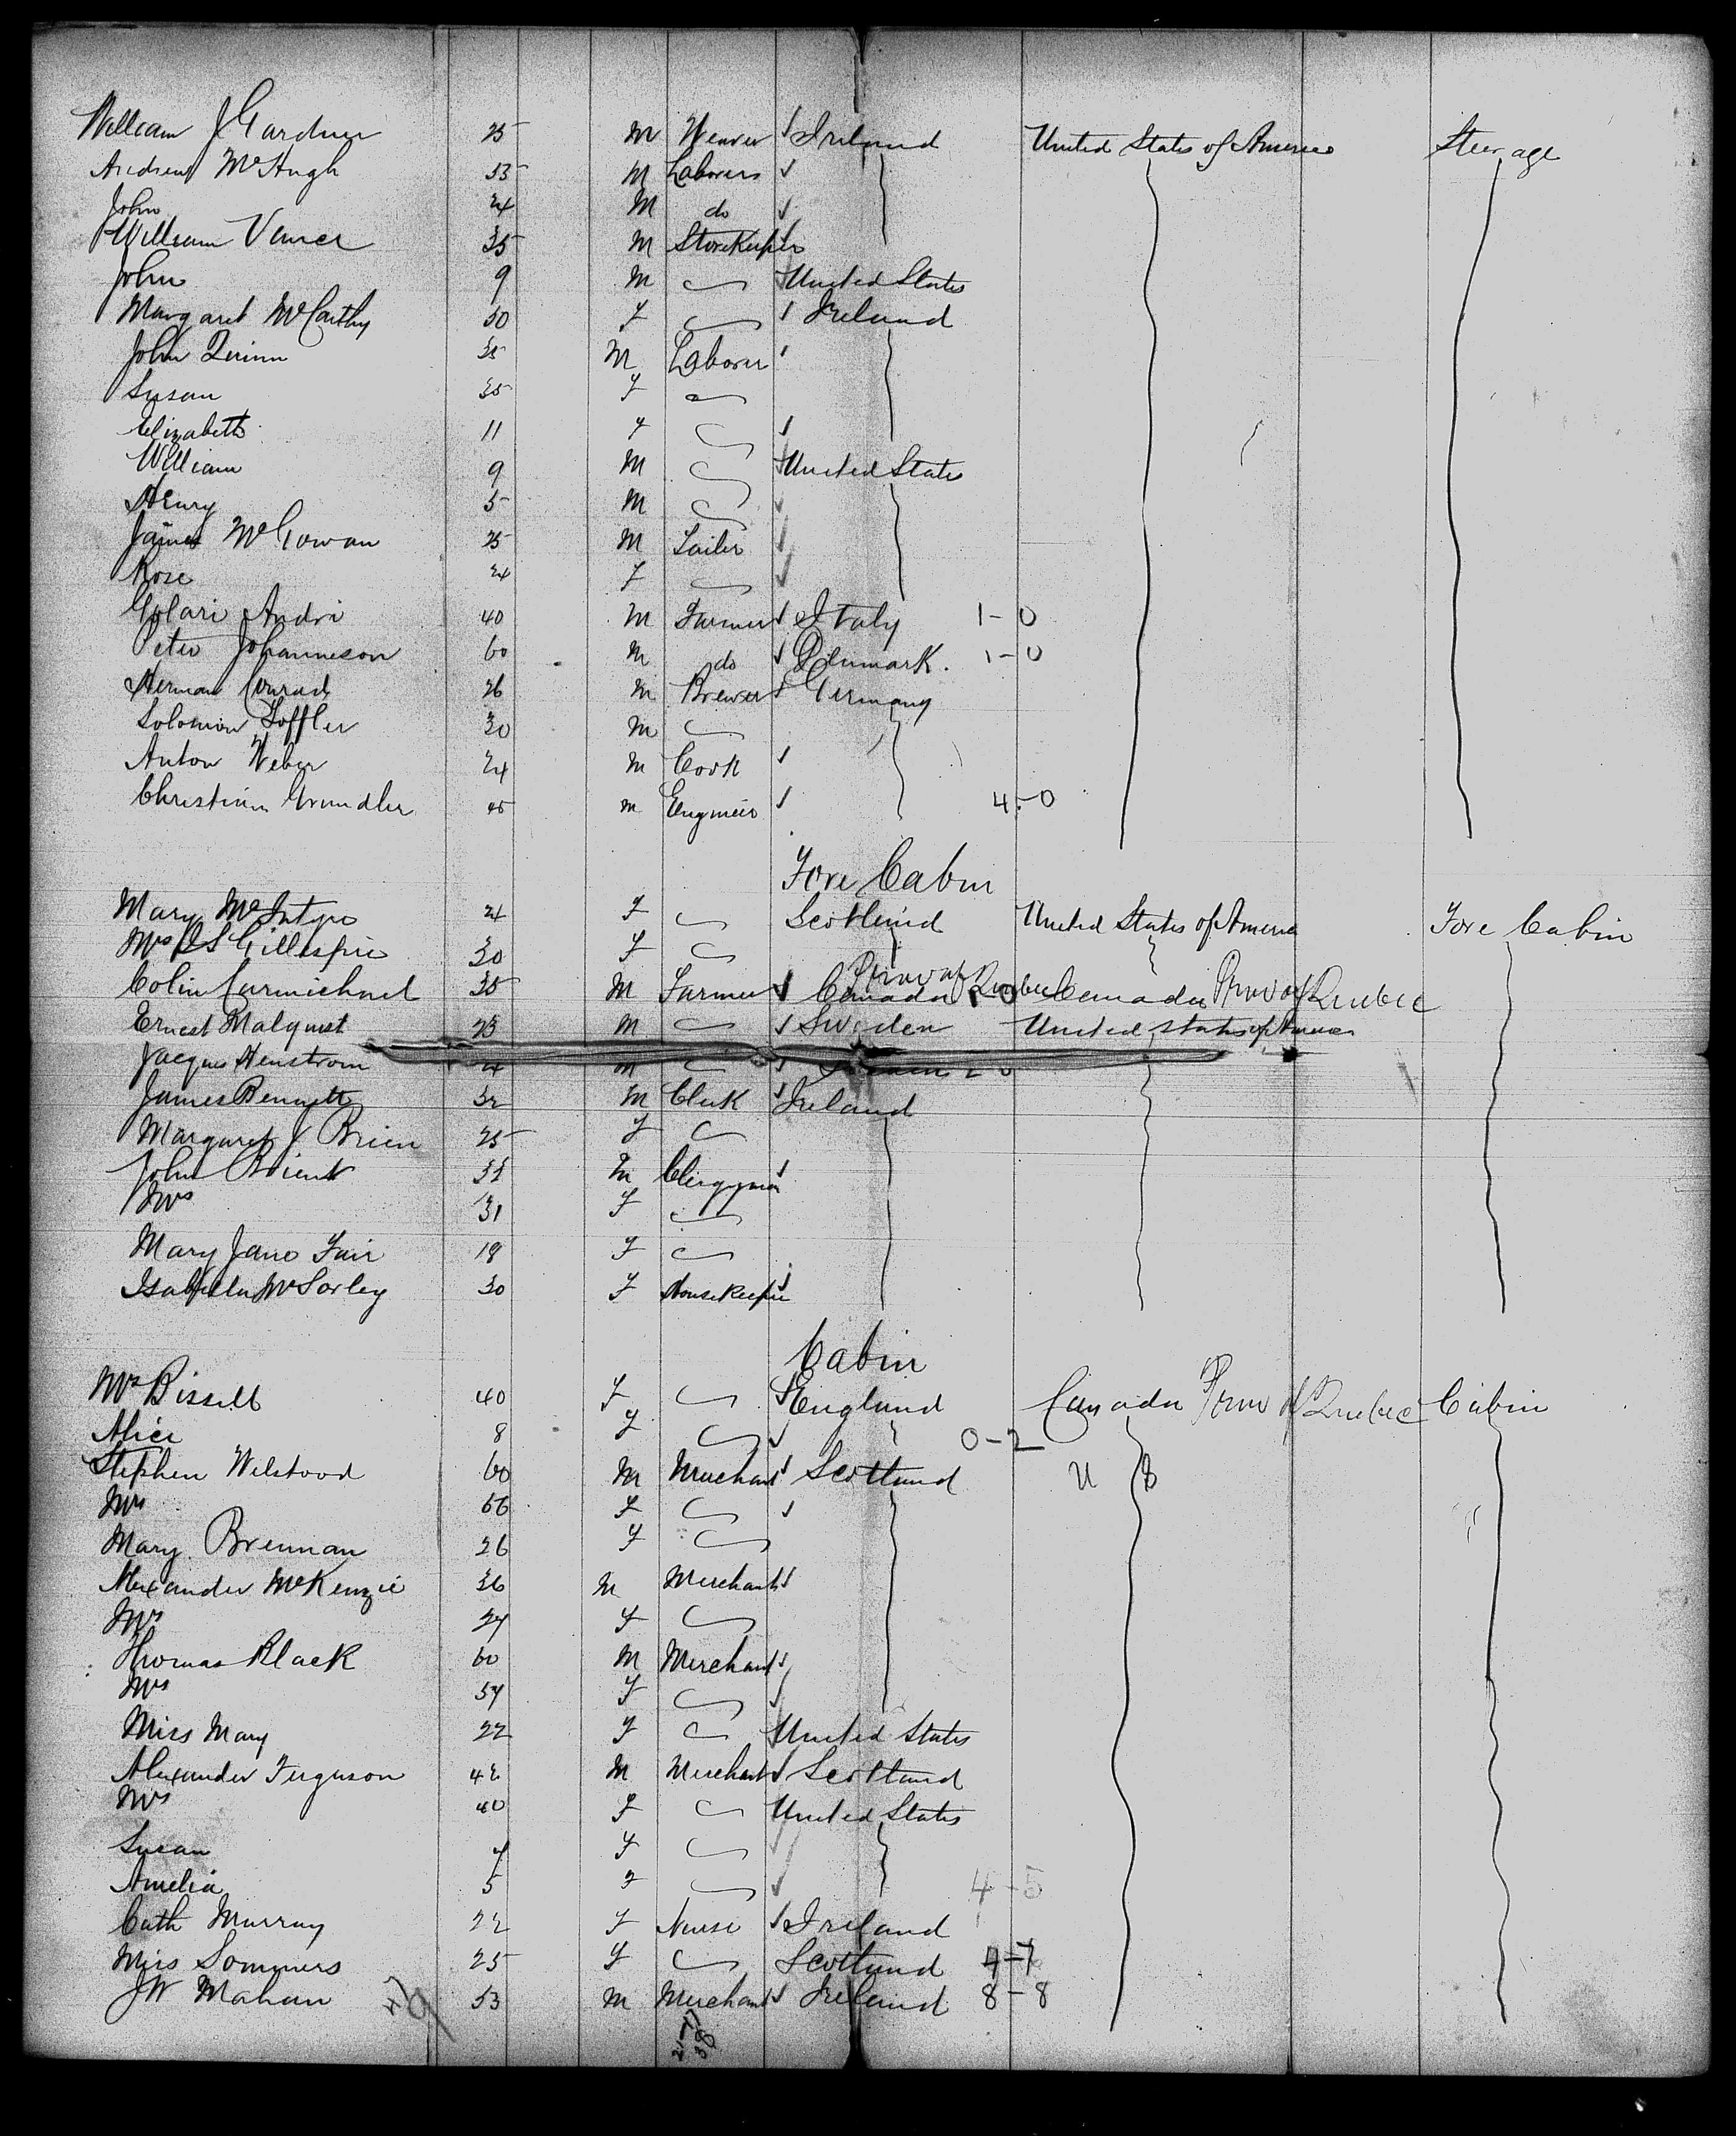 William J Gardner 25 M Weaver Ireland United States of America Steerage
Andrew McHugh 53 M Laborers
John 24 M do
William Vance 35 M Storekeeper
John 9 M United States
Margaret McCarthy 50 F Ireland
John Quinn 35 M Laborer
Susan 35 F
Elizabeth 11 F
William 9 M United States
Henry 5 M
James McGowan 25 M Tailor
Rose 24 F
Andri 40 M Farmer Italy 1-0
Peter Johanneson 60 M do Denmark. 1-0
Herman Conrad 26 M Brewer Germany
Solomon Loffler 30 M
Anton Weber 24 M Cook
Christian Grundler 45 M Engineer 4-0
Fore Cabin
Mary McIntyre 24 F Scotland United States of America Fore Cabin
Mrs Gillespie 30 F
Colin Carmichael 35 M Farmer Canada Prov of Quebec Canada Prov of Quebec
Ernest Malquist 23 M Sweden United States of America
Jacques Henstrom M
James Bennett 32 M Clerk Ireland
Margaret J Brien 25 F
John Brient M Clergyman
Mrs 31 F
Mary Jane Fair 18 F
Isabella McSorley 30 F Housekeeper
Cabin
Mrs Bissell 40 F England Canada Prov of Quebec Cabin
Alice 8 F 0-2
Stephen Welstood 60 M Merchant Scotland U S
Mrs 56 F
Mary Brennan 26 F
Alexander McKenzie 36 M Merchant
Mrs 27 F
Thomas Black 60 M Merchant
Mrs 57 F
Miss Mary 22 F United States
Alexander Ferguson 42 M Merchant Scotland
Mrs 40 F United States
Susan 7 F
Amelia 5 F 4-5
Cath Murray 22 F Nurse Ireland
Miss Sommers 25 F Scotland 4-7
JW Mahan 53 M Merchant Ireland 8-8